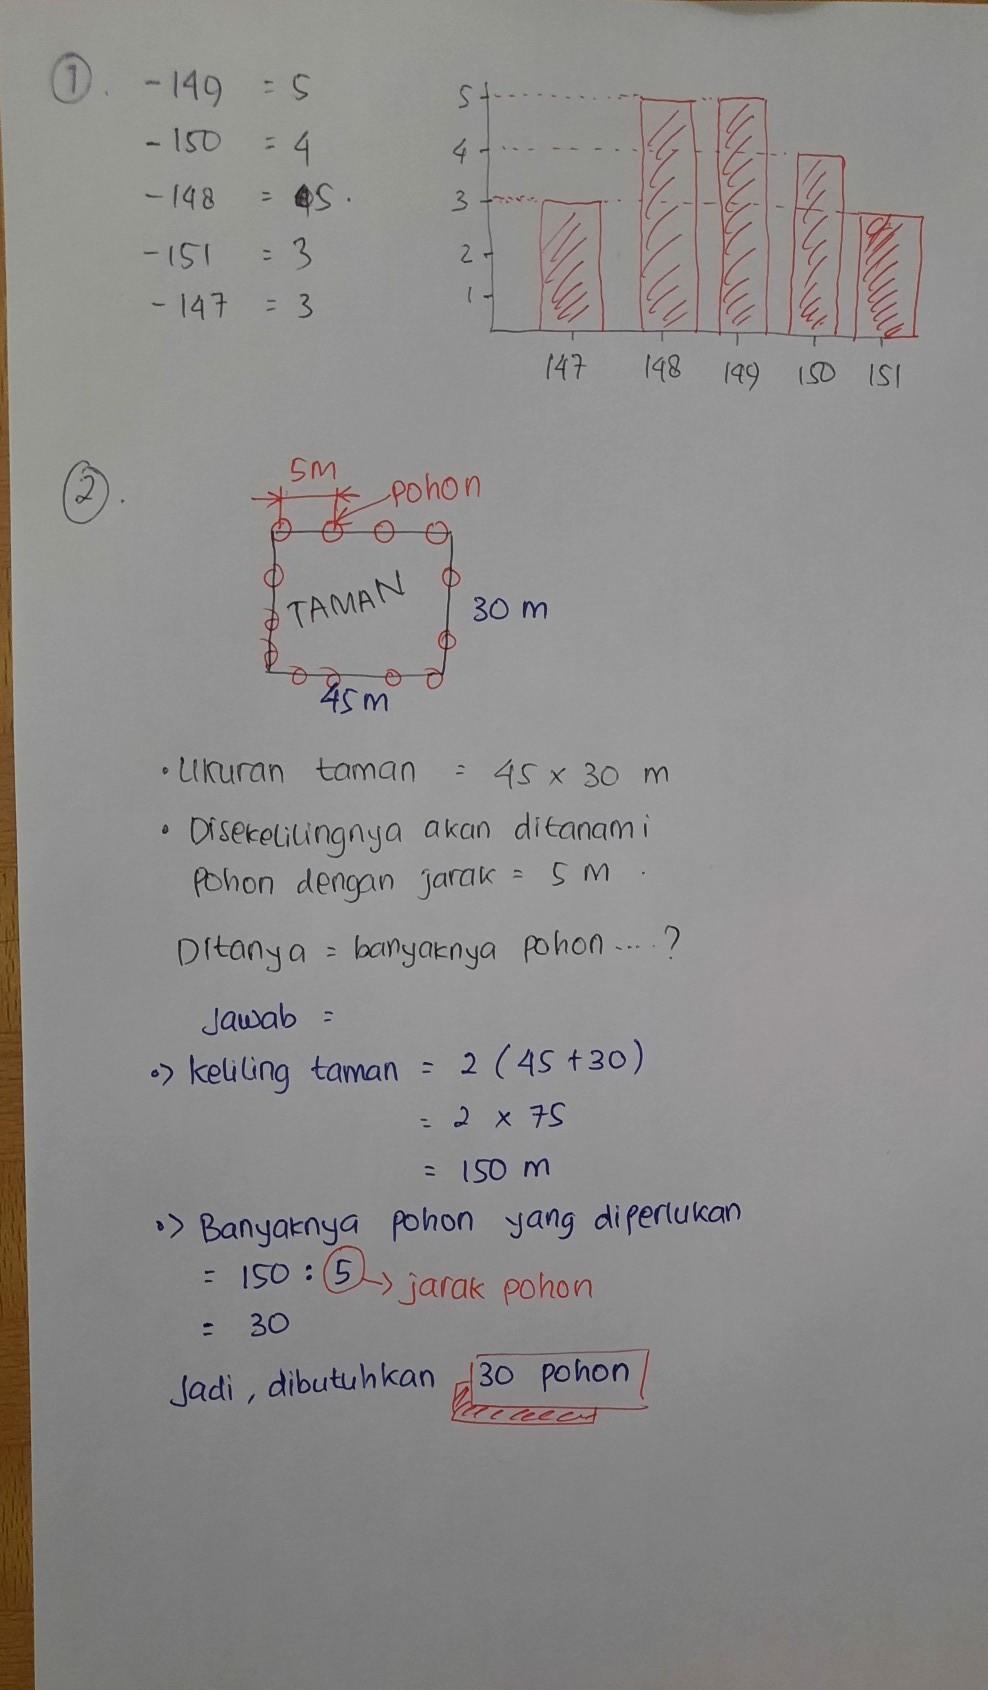 1.
- 149 = 5
- 150 = 4
- 148 = 5.
- 151 = 3
- 147 = 3
5
4
3
2
1
147 148 149 150 151
2.
5M
pohon
TAMAN
30 m
45 m
• Ukuran taman = 45 x 30 m
• Disekelilingnya akan ditanami
pohon dengan jarak = 5 M.
Ditanya = banyaknya pohon ....?
Jawab =
•> keliling taman = 2 (45 + 30)
= 2 x 75
= 150 m
•> Banyaknya pohon yang diperlukan
= 150 : 5 → jarak pohon
= 30
Jadi, dibutuhkan 30 pohon